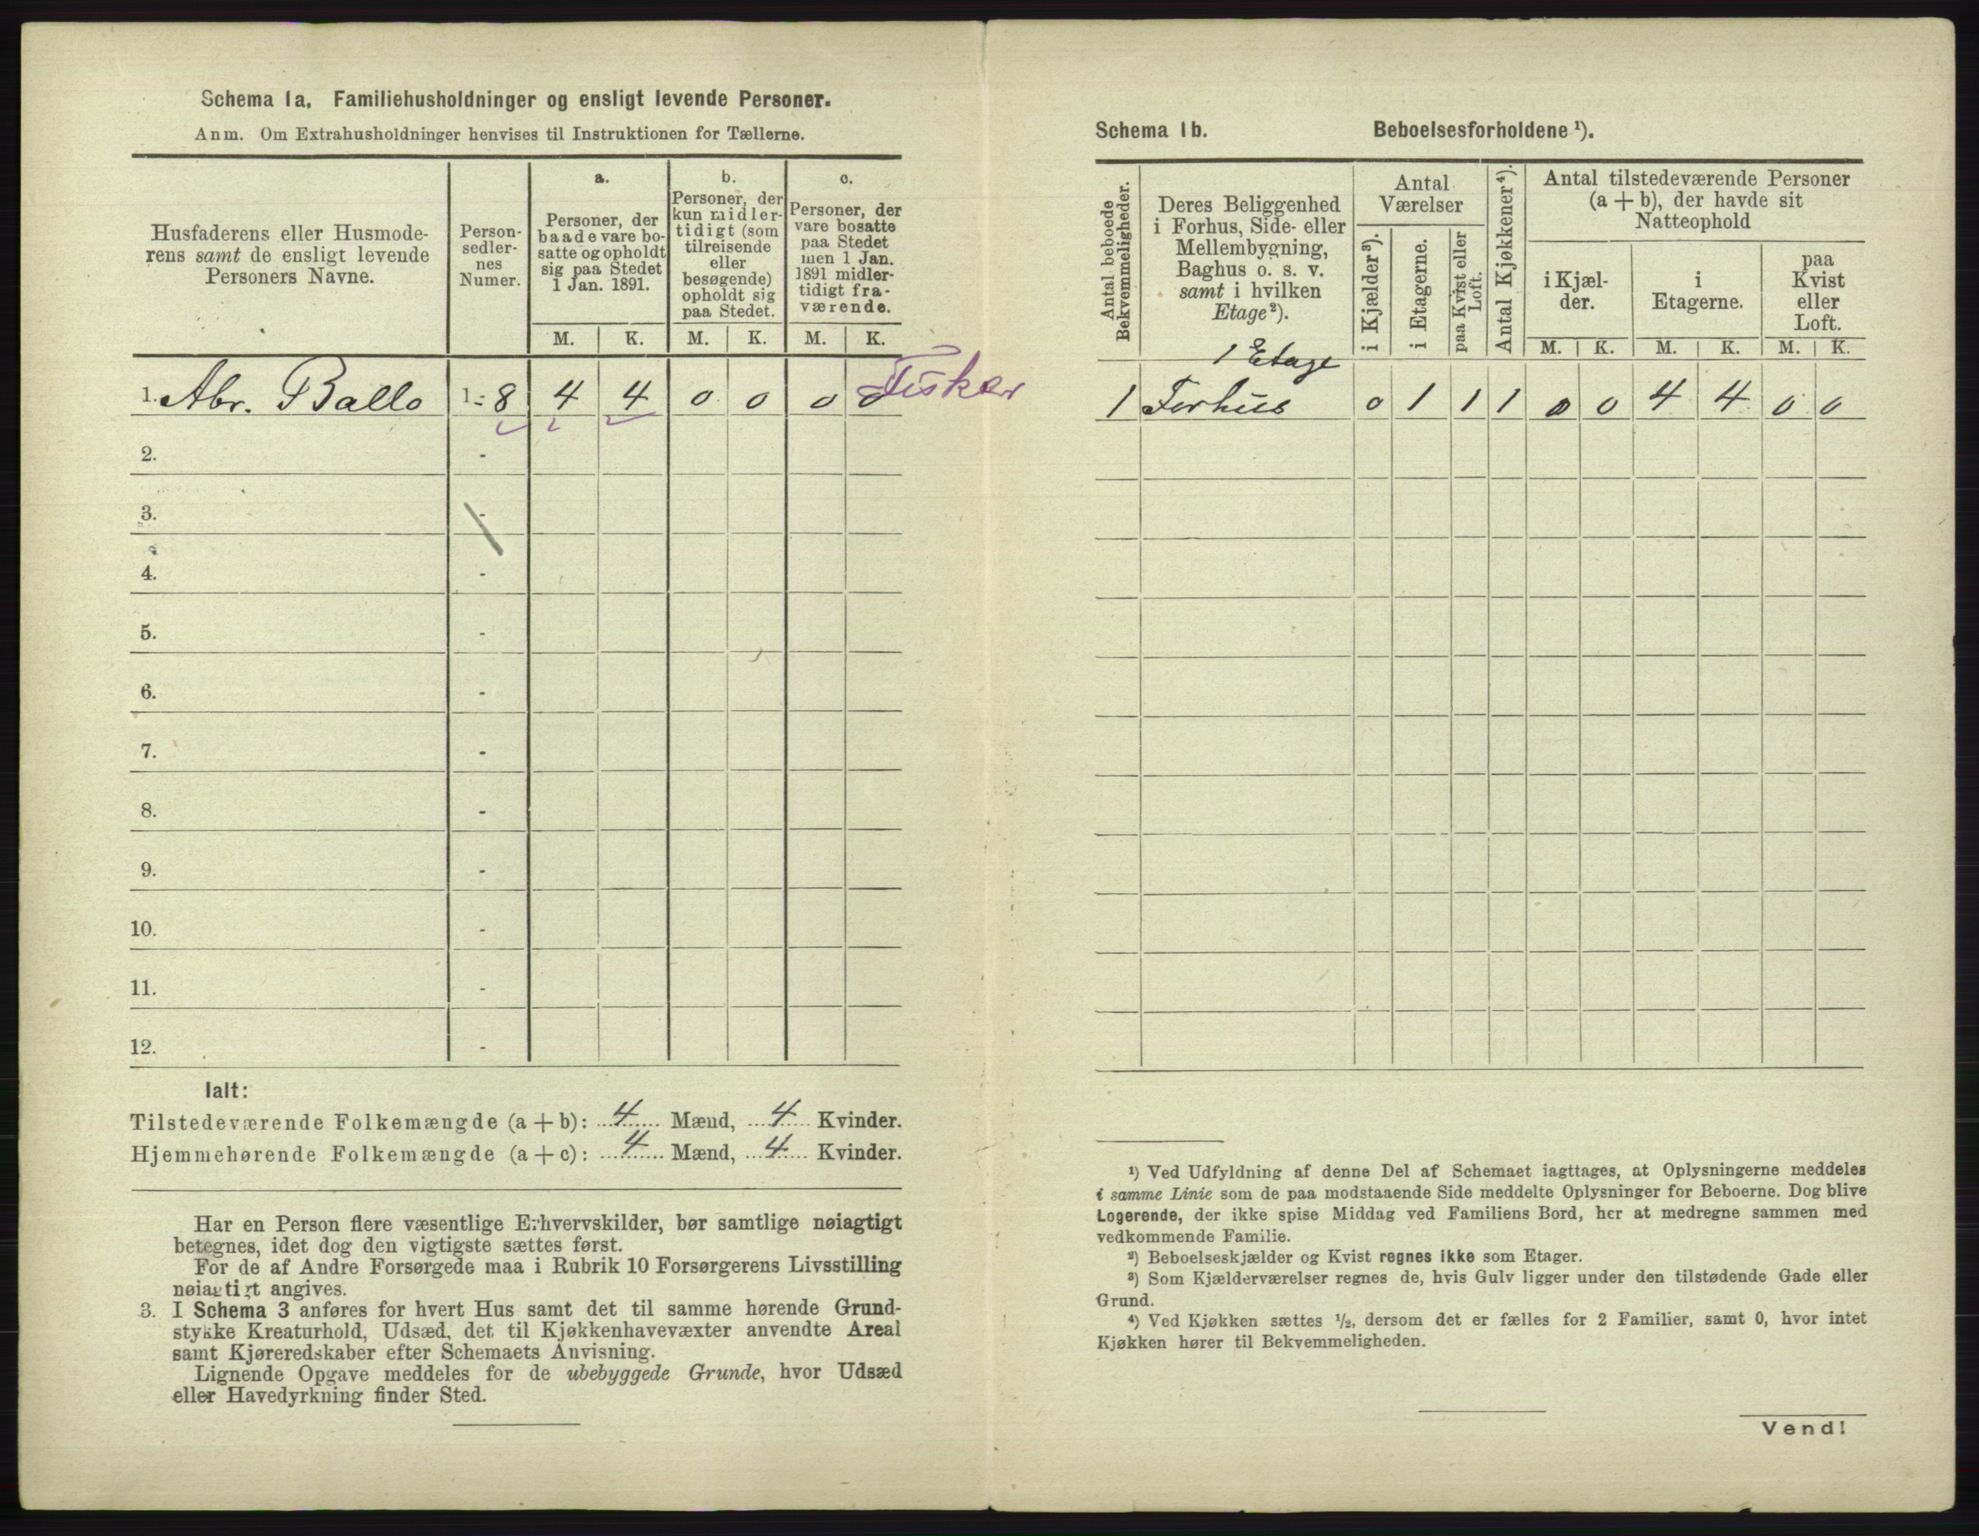 Schema 1a. Familiehusholdninger og ensligt levende Personer.
Anm. Om Extrahusholdninger henvises til Instruktionen for Tællerne.
Husfaderens eller Husmode-
rens samt de ensligt levende
Personers Navne.
Person-
sedler-
nes
Numer.
a.
Personer, der
baade vare bo-
satte og opholdt
sig paa Stedet
1 Jan. 1891.
b.
Personer, der
kun midler-
tidigt (som
tilreisende
eller
besøgende)
opholdt sig
paa Stedet.
c.
Personer, der
vare bosatte
paa Stedet
men 1 Jan.
1891 midler-
tidigt fra-
værende.
M. K. M. K. M. K.
1. Abr. Ballo 1-8 4 4 0 0 0 0 Fisker
2. -
3. -
4. -
5. -
6. -
7. -
8. -
9. -
10. -
11. -
12. -
Ialt:
Tilstedeværende Folkemængde (a + b): 4 Mænd, 4 Kvinder.
Hjemmehørende Folkemængde (a + c): 4 Mænd, 4 Kvinder.
Har en Person flere væsentlige Erhvervskilder, bør samtlige nøiagtigt
betegnes, idet dog den vigtigste sættes først.
For de af Andre Forsørgede maa i Rubrik 10 Forsørgerens Livsstilling
nøiagtigt angives.
3. I Schema 3 anføres for hvert Hus samt det til samme hørende Grund-
stykke Kreaturhold, Udsæd, det til Kjøkkenhavevæxter anvendte Areal
samt Kjøreredskaber efter Schemaets Anvisning.
Lignende Opgave meddeles for de ubebyggede Grunde, hvor Udsæd
eller Havedyrkning finder Sted.
Schema 1b. Beboelsesforholdene ¹).
Antal beboede
Bekvemmeligheder.
Deres Beliggenhed
i Forhus, Side- eller
Mellembygning,
Baghus o. s. v.
samt i hvilken
Etage²).
Antal
Værelser
i Kjælder³).
i Etagerne.
paa Kvist eller
Loft.
Antal Kjøkkener⁴).
Antal tilstedeværende Personer
(a + b), der havde sit
Natteophold
i Kjæl-
der.
i
Etagerne.
paa
Kvist
eller
Loft.
M. K. M. K. M. K.
1 Etage
1 Forhus 0 1 1 1 0 0 4 4 0 0
¹) Ved Udfyldning af denne Del af Schemaet iagttages, at Oplysningerne meddeles
i samme Linie som de paa modstaaende Side meddelte Oplysninger for Beboerne. Dog blive
Logerende, der ikke spise Middag ved Familiens Bord, her at medregne sammen med
vedkommende Familie.
²) Beboelseskjælder og Kvist regnes ikke som Etager.
³) Som Kjælderværelser regnes de, hvis Gulv ligger under den tilstødende Gade eller
Grund.
⁴) Ved Kjøkken sættes ½, dersom det er fælles for 2 Familier, samt 0, hvor intet
Kjøkken hører til Bekvemmeligheden.
Vend!